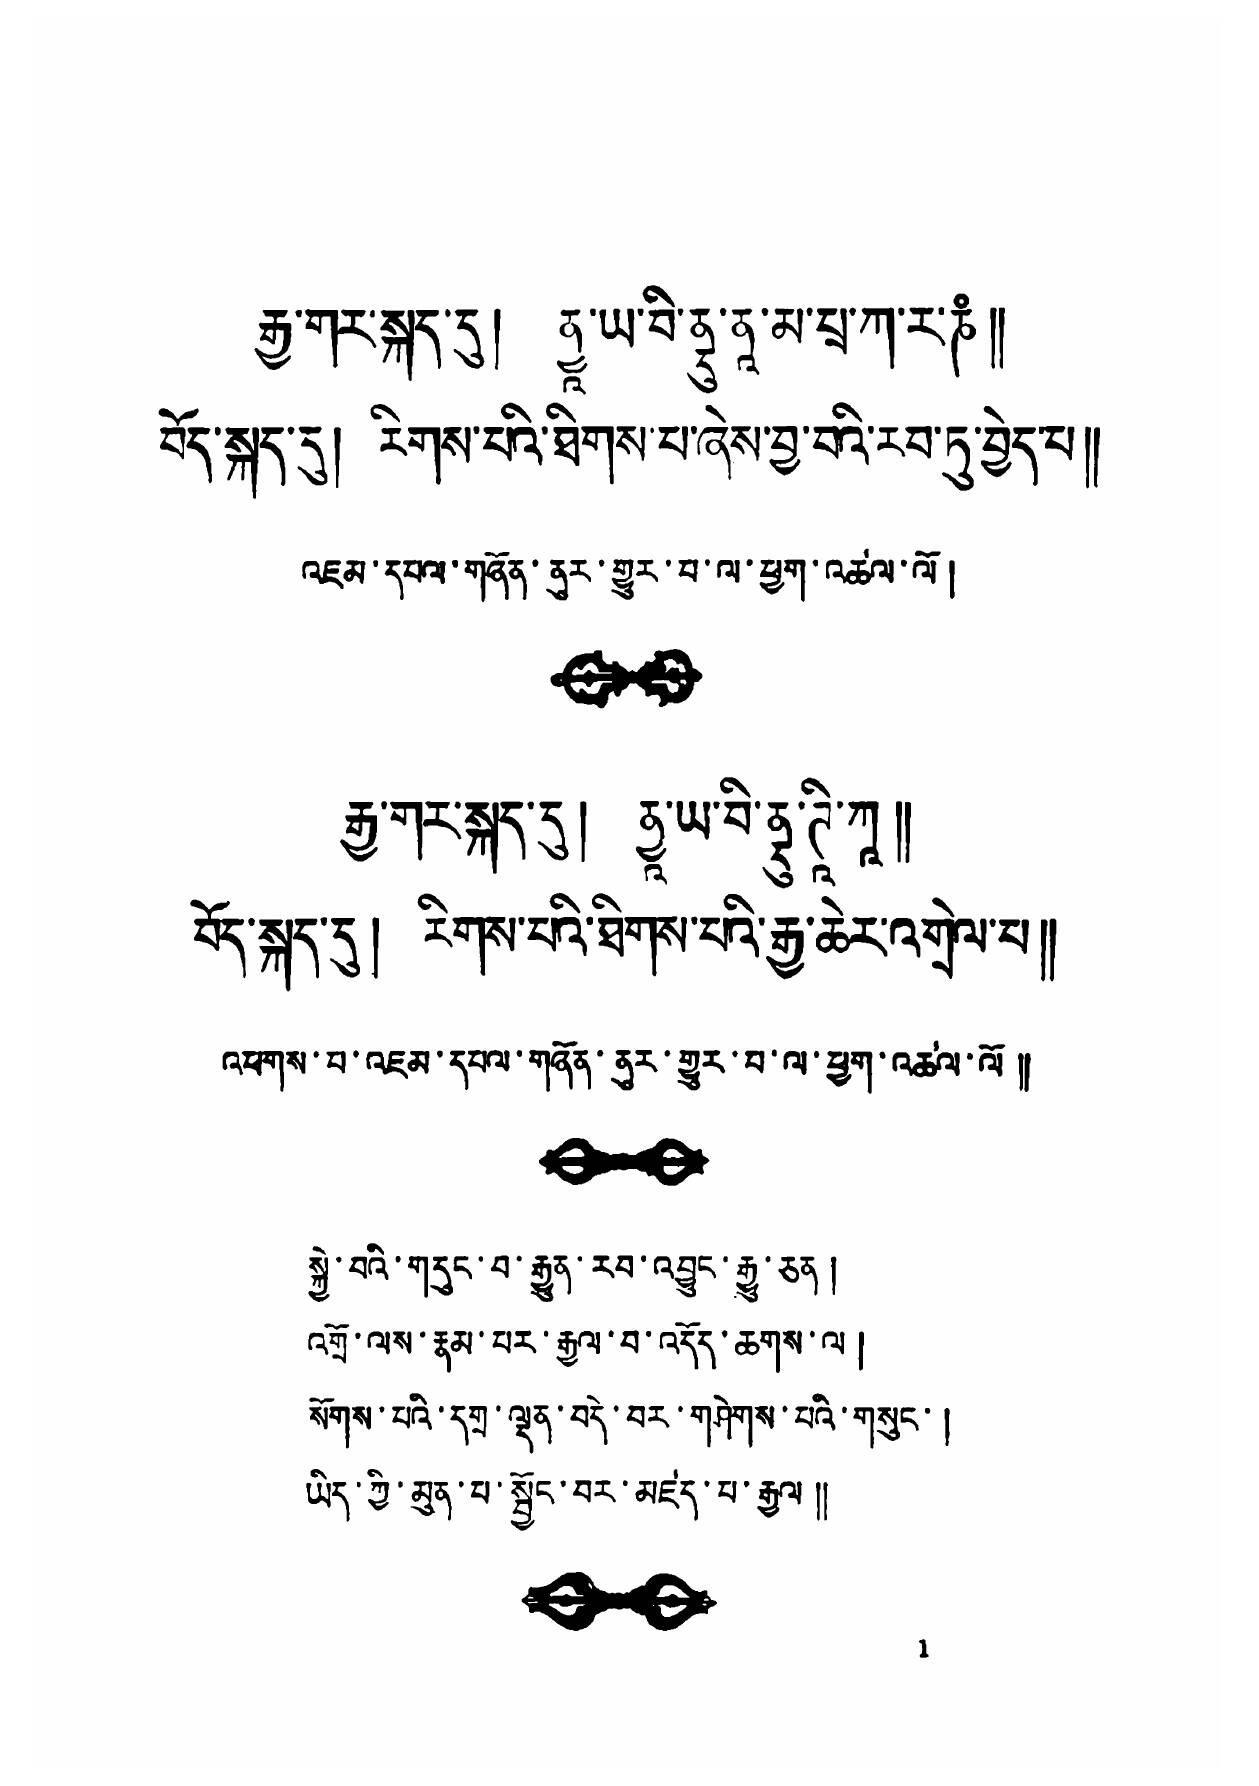 རྒྱ་གར་སྐད་དུ། ནྱཱ་ཡ་བི་ནྡུ་ནཱ་མ་པྲ་ཀ་ར་ཎཾ༎
བོད་སྐད་དུ། རིགས་པའི་ཐིགས་པ་ཞེས་བྱ་བའི་རབ་ཏུ་བྱེད་པ༎
འཇམ་དཔལ་གཞོན་ནུར་གྱུར་བ་ལ་ཕྱག་འཚལ་ལོ།
རྒྱ་གར་སྐད་དུ། ནྱཱ་ཡ་བི་ནྡུ་ཊཱི་ཀཱ༎
བོད་སྐད་དུ། རིགས་པའི་ཐིགས་པའི་རྒྱ་ཆེར་འགྲེལ་པ༎
འཕགས་པ་འཇམ་དཔལ་གཞོན་ནུར་གྱུར་བ་ལ་ཕྱག་འཚལ་ལོ༎
སྐྱེ་བའི་གདུང་བ་རྒྱུན་རབ་འབྱུང་རྒྱུ་ཅན།
འགྲོ་ལས་རྣམ་པར་རྒྱལ་བ་འདོད་ཆགས་ལ།
སོགས་པའི་དགྲ་ལྡན་བདེ་བར་གཤེགས་པའི་གསུང་།
ཡིད་ཀྱི་མུན་པ་སྦྱོང་བར་མཛད་པ་རྒྱལ༎
1